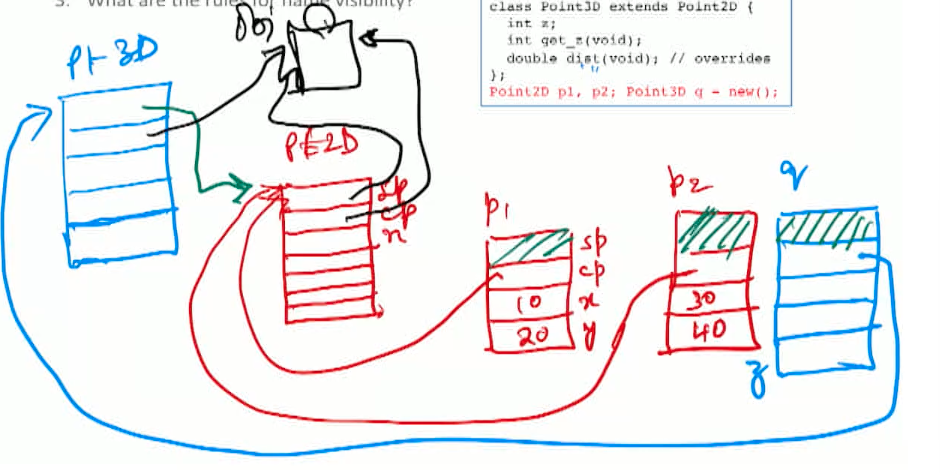 3. What are the rules for name visibility?
class Point3D extends Point2D {
int z;
int get_z(void);
double dist(void); // overrides
};
Point2D p1, p2; Point3D q = new();
Obj
Pt 3D
Pt 2D
sp
cp
x
p1
sp
cp
10 x
20 y
p2
30
40
q
z